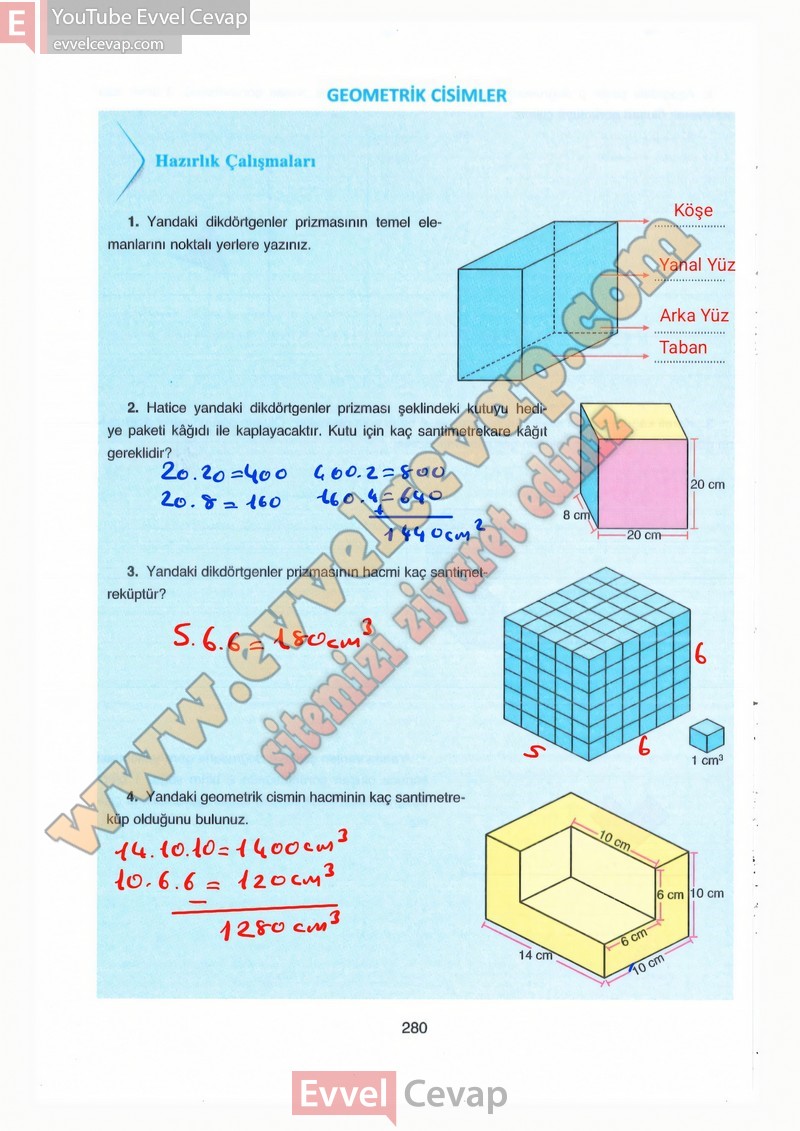 E YouTube Evvel Cevap
evvelcevap.com
GEOMETRİK CİSİMLER
Hazırlık Çalışmaları
1. Yandaki dikdörtgenler prizmasının temel ele-
manlarını noktalı yerlere yazınız.
Köşe
Yanal Yüz
Arka Yüz
Taban
2. Hatice yandaki dikdörtgenler prizması şeklindeki kutuyu hedi-
ye paketi kâğıdı ile kaplayacaktır. Kutu için kaç santimetrekare kâğıt
gereklidir?
20.20=400 400.2=800
20.8=160 160.4=640
+
1440cm²
20 cm
8 cm
20 cm
3. Yandaki dikdörtgenler prizmasının hacmi kaç santimet-
reküptür?
5.6.6=180cm³
6
5
6
1 cm³
4. Yandaki geometrik cismin hacminin kaç santimetre-
küp olduğunu bulunuz.
14.10.10=1400cm³
10.6.6=120cm³
-
1280cm³
10 cm
6 cm
10 cm
6 cm
14 cm
10 cm
www.evvelcevap.com
sitemizi ziyaret ediniz
280
Evvel Cevap